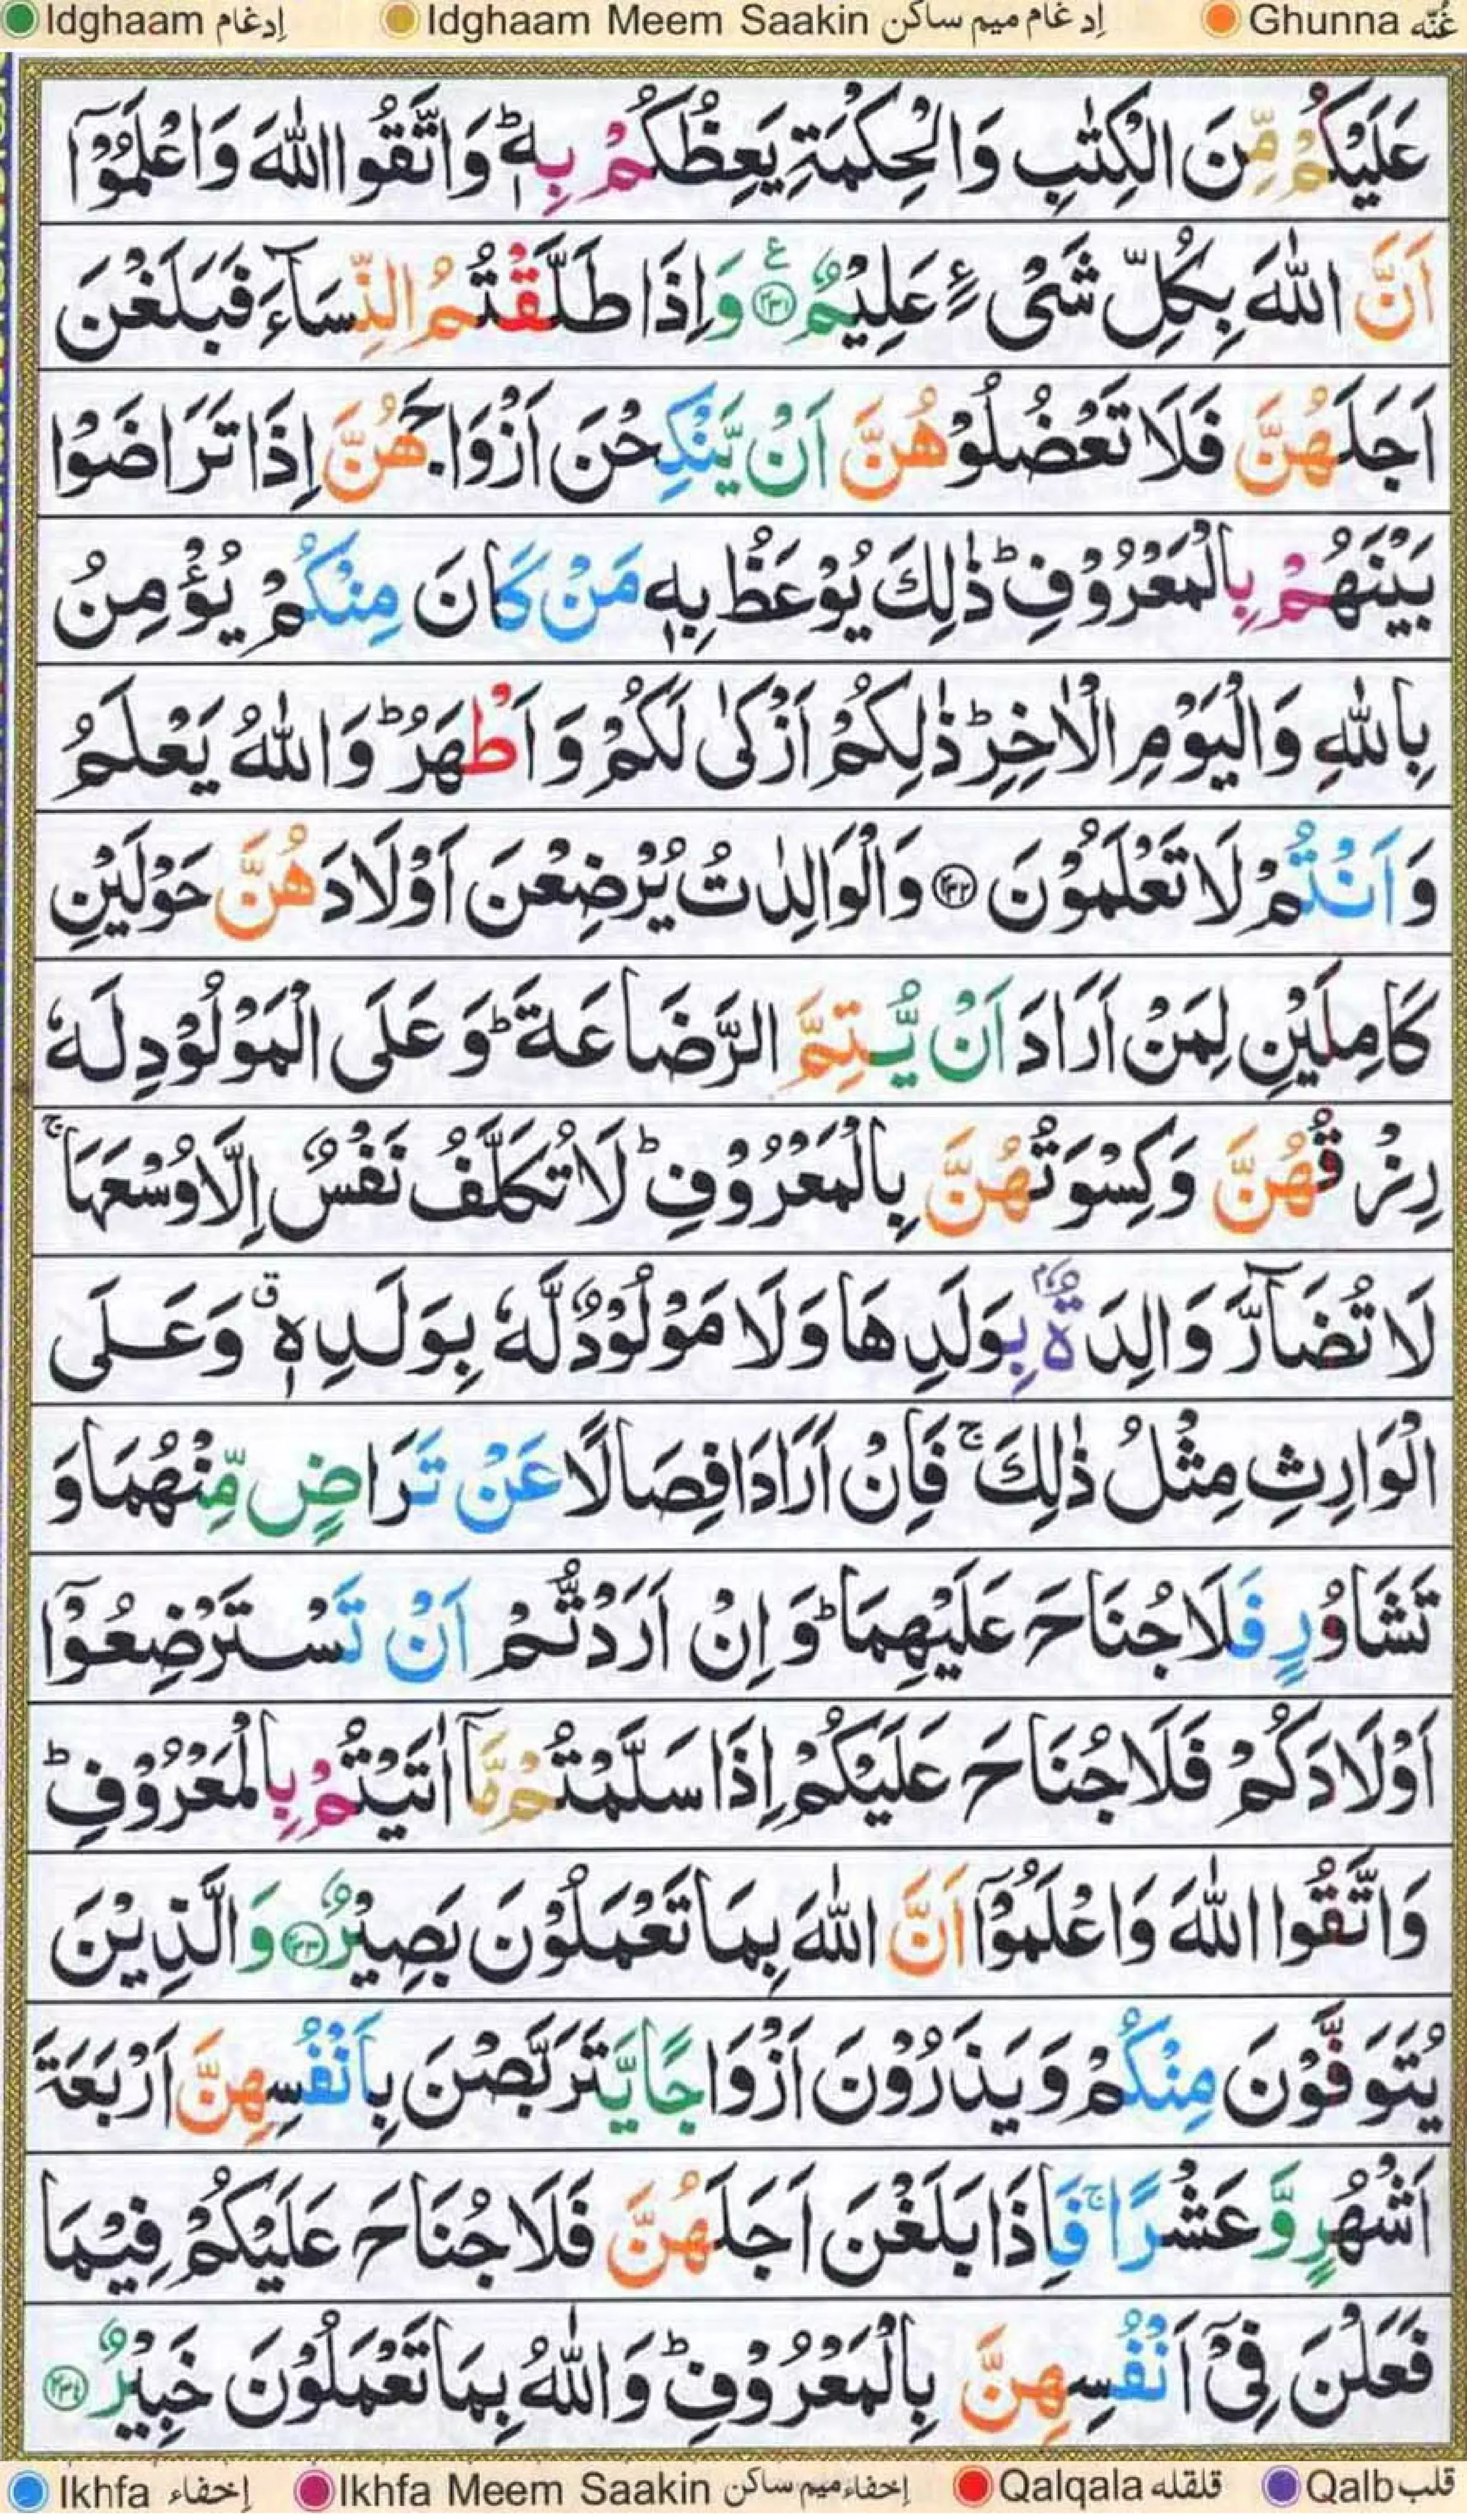 Idghaam إدغام Idghaam Meem Saakin إدغام ميم ساكن Ghunna غُنّه
عَلَيْكُمْ مِّنَ الْكِتٰبِ وَالْحِكْمَةِ يَعِظُكُمْ بِهٖ ؕ وَاتَّقُوا اللّٰهَ وَاعْلَمُوْۤا
اَنَّ اللّٰهَ بِكُلِّ شَیْءٍ عَلِيْمٌ ﴿۲۳۱﴾ ع وَاِذَا طَلَّقْتُمُ النِّسَآءَ فَبَلَغْنَ
اَجَلَهُنَّ فَلَا تَعْضُلُوْهُنَّ اَنْ يَّنْكِحْنَ اَزْوَاجَهُنَّ اِذَا تَرَاضَوْا
بَيْنَهُمْ بِالْمَعْرُوْفِ ؕ ذٰلِكَ يُوْعَظُ بِهٖ مَنْ كَانَ مِنْكُمْ يُؤْمِنُ
بِاللّٰهِ وَالْيَوْمِ الْاٰخِرِ ؕ ذٰلِكُمْ اَزْكٰی لَكُمْ وَ اَطْهَرُ ؕ وَاللّٰهُ يَعْلَمُ
وَ اَنْتُمْ لَا تَعْلَمُوْنَ ﴿۲۳۲﴾ وَالْوَالِدٰتُ يُرْضِعْنَ اَوْلَادَهُنَّ حَوْلَيْنِ
كَامِلَيْنِ لِمَنْ اَرَادَ اَنْ يُّتِمَّ الرَّضَاعَةَ ؕ وَ عَلَی الْمَوْلُوْدِ لَهٗ
رِزْقُهُنَّ وَكِسْوَتُهُنَّ بِالْمَعْرُوْفِ ؕ لَا تُكَلَّفُ نَفْسٌ اِلَّا وُسْعَهَا ۚ
لَا تُضَآرَّ وَالِدَةٌۢ بِوَلَدِهَا وَلَا مَوْلُوْدٌ لَّهٗ بِوَلَدِهٖ ۗ وَعَلَی
الْوَارِثِ مِثْلُ ذٰلِكَ ۚ فَاِنْ اَرَادَا فِصَالًا عَنْ تَرَاضٍ مِّنْهُمَا وَ
تَشَاوُرٍ فَلَا جُنَاحَ عَلَيْهِمَا ؕ وَ اِنْ اَرَدْتُّمْ اَنْ تَسْتَرْضِعُوْۤا
اَوْلَادَكُمْ فَلَا جُنَاحَ عَلَيْكُمْ اِذَا سَلَّمْتُمْ مَّاۤ اٰتَيْتُمْ بِالْمَعْرُوْفِ ؕ
وَاتَّقُوا اللّٰهَ وَاعْلَمُوْۤا اَنَّ اللّٰهَ بِمَا تَعْمَلُوْنَ بَصِيْرٌ ﴿۲۳۳﴾ وَالَّذِيْنَ
يُتَوَفَّوْنَ مِنْكُمْ وَ يَذَرُوْنَ اَزْوَاجًا يَّتَرَبَّصْنَ بِاَنْفُسِهِنَّ اَرْبَعَةَ
اَشْهُرٍ وَّ عَشْرًا ۚ فَاِذَا بَلَغْنَ اَجَلَهُنَّ فَلَا جُنَاحَ عَلَيْكُمْ فِيْمَا
فَعَلْنَ فِیْۤ اَنْفُسِهِنَّ بِالْمَعْرُوْفِ ؕ وَاللّٰهُ بِمَا تَعْمَلُوْنَ خَبِيْرٌ ﴿۲۳۴﴾
Ikhfa إخفاء Ikhfa Meem Saakin إخفاء ميم ساكن Qalqala قلقله Qalb قلب